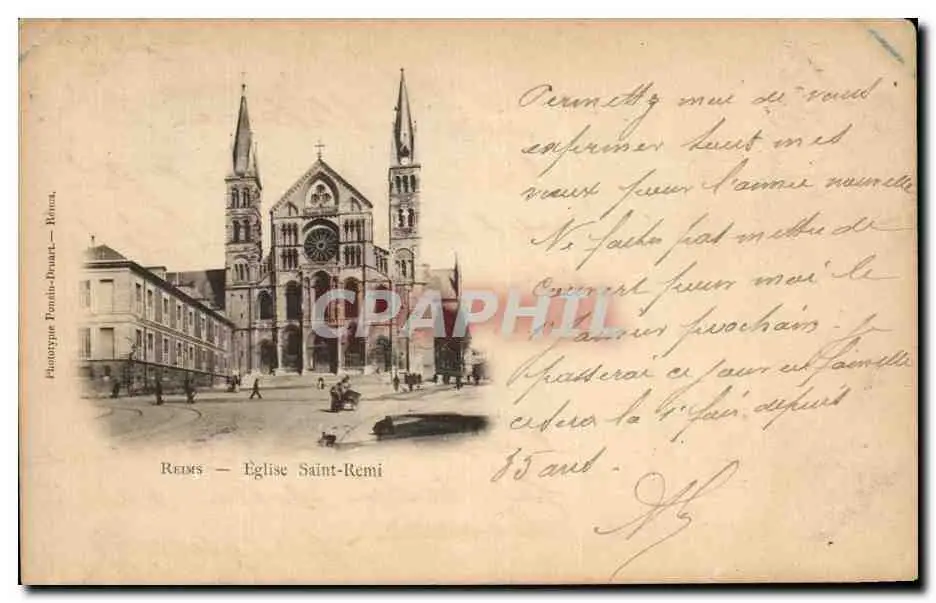 Permettez moi de vous
exprimer tout mes
vœux pour l'année nouvelle
Ne faites pas mettre de
couvert pour moi le
1er janvier prochain.
Je passerai ce jour en famille
cesera la 1er fois depuis
35 ans.
Phototypie Ponsin-Druart. — Reims.
CPAPHIL
REIMS — Église Saint-Remi